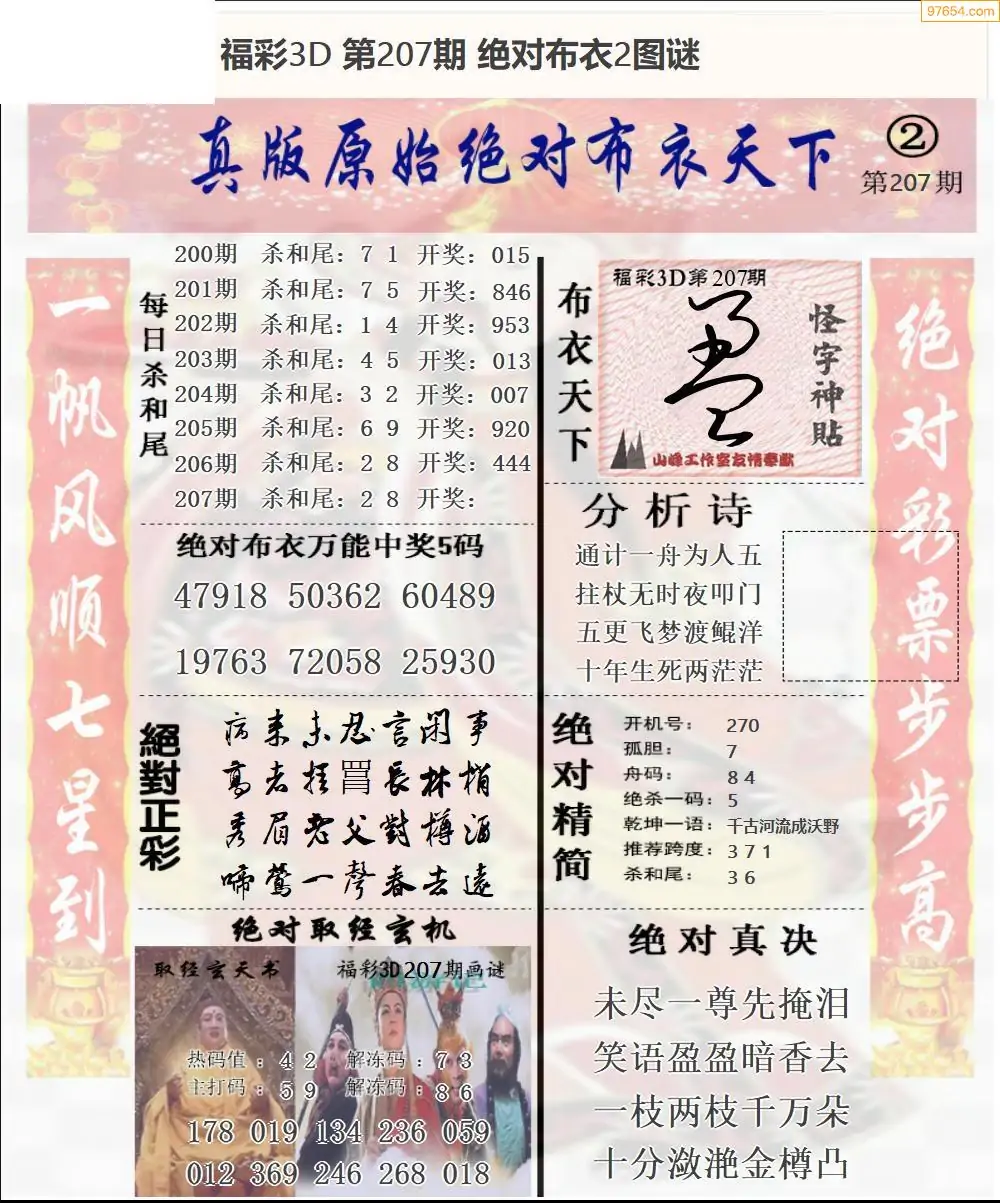 97654.com
福彩3D 第207期 绝对布衣2图谜
真版原始绝对布衣天下
②
第207期
一帆风顺七星到
每日杀和尾
200期 杀和尾：7 1 开奖：015
201期 杀和尾：7 5 开奖：846
202期 杀和尾：1 4 开奖：953
203期 杀和尾：4 5 开奖：013
204期 杀和尾：3 2 开奖：007
205期 杀和尾：6 9 开奖：920
206期 杀和尾：2 8 开奖：444
207期 杀和尾：2 8 开奖：
绝对布衣万能中奖5码
47918 50362 60489
19763 72058 25930
絕對正彩
病来未忍言闲事
高者挂罥長林梢
秀眉老父對樽酒
啼鶯一聲春去遠
绝对取经玄机
取经玄天书
福彩3D207期画谜
热码值：4 2 解冻码：7 3
主打码：5 9 解冻码：8 6
178 019 134 236 059
012 369 246 268 018
布衣天下
福彩3D第207期
怪字神貼
山峰工作室友情奉献
分析诗
通计一舟为人五
拄杖无时夜叩门
五更飞梦渡鲲洋
十年生死两茫茫
绝对精简
开机号： 270
孤胆： 7
舟码： 8 4
绝杀一码：5
乾坤一语：千古河流成沃野
推荐跨度：3 7 1
杀和尾： 3 6
绝对真决
未尽一尊先掩泪
笑语盈盈暗香去
一枝两枝千万朵
十分潋滟金樽凸
绝对彩票步步高